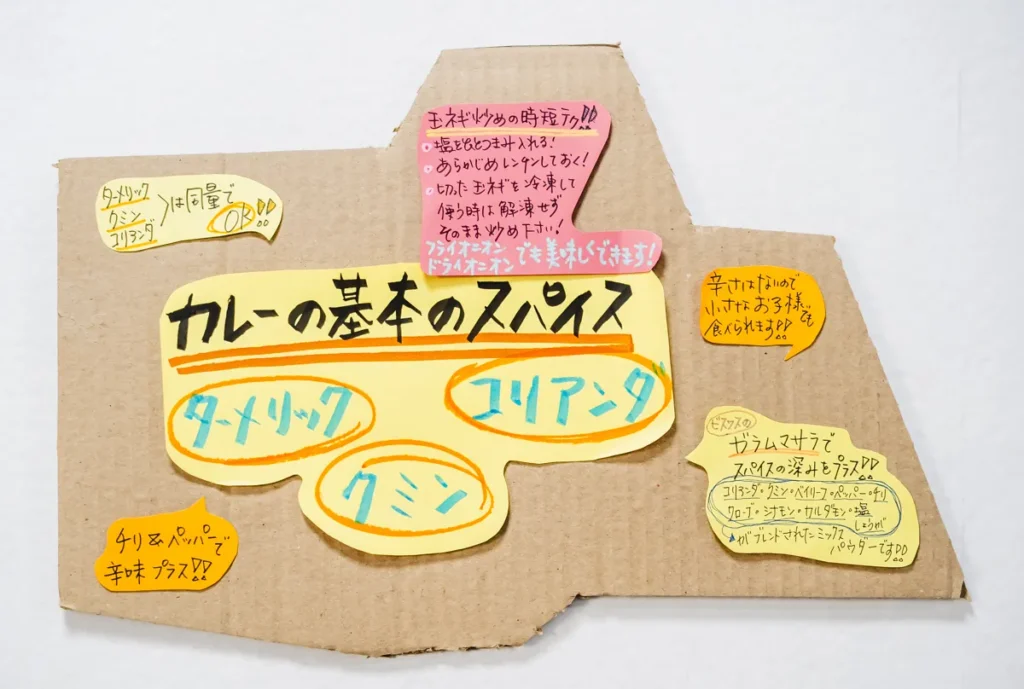 玉ネギ炒めの時短テク!!
塩をひとつまみ入れる!
あらかじめレンチンしておく!
切った玉ネギを冷凍して
使う時は解凍せず
そのまま炒め下さい!
フライオニオン
ドライオニオン でも美味しくできます!
ターメリック
クミン
コリアンダ
は同量で
OK!!
カレーの基本のスパイス
ターメリック
コリアンダ
クミン
辛さはないので
小さなお子様でも
食べられます!!
ビスクスの
ガラムマサラで
スパイスの深みをプラス!!
コリアンダ・クミン・ベイリーフ・ペッパー・チリ
クローブ・シナモン・カルダモン・塩
しょうが
がブレンドされたミックス
パウダーです!!
チリ&ペッパーで
辛味プラス!!